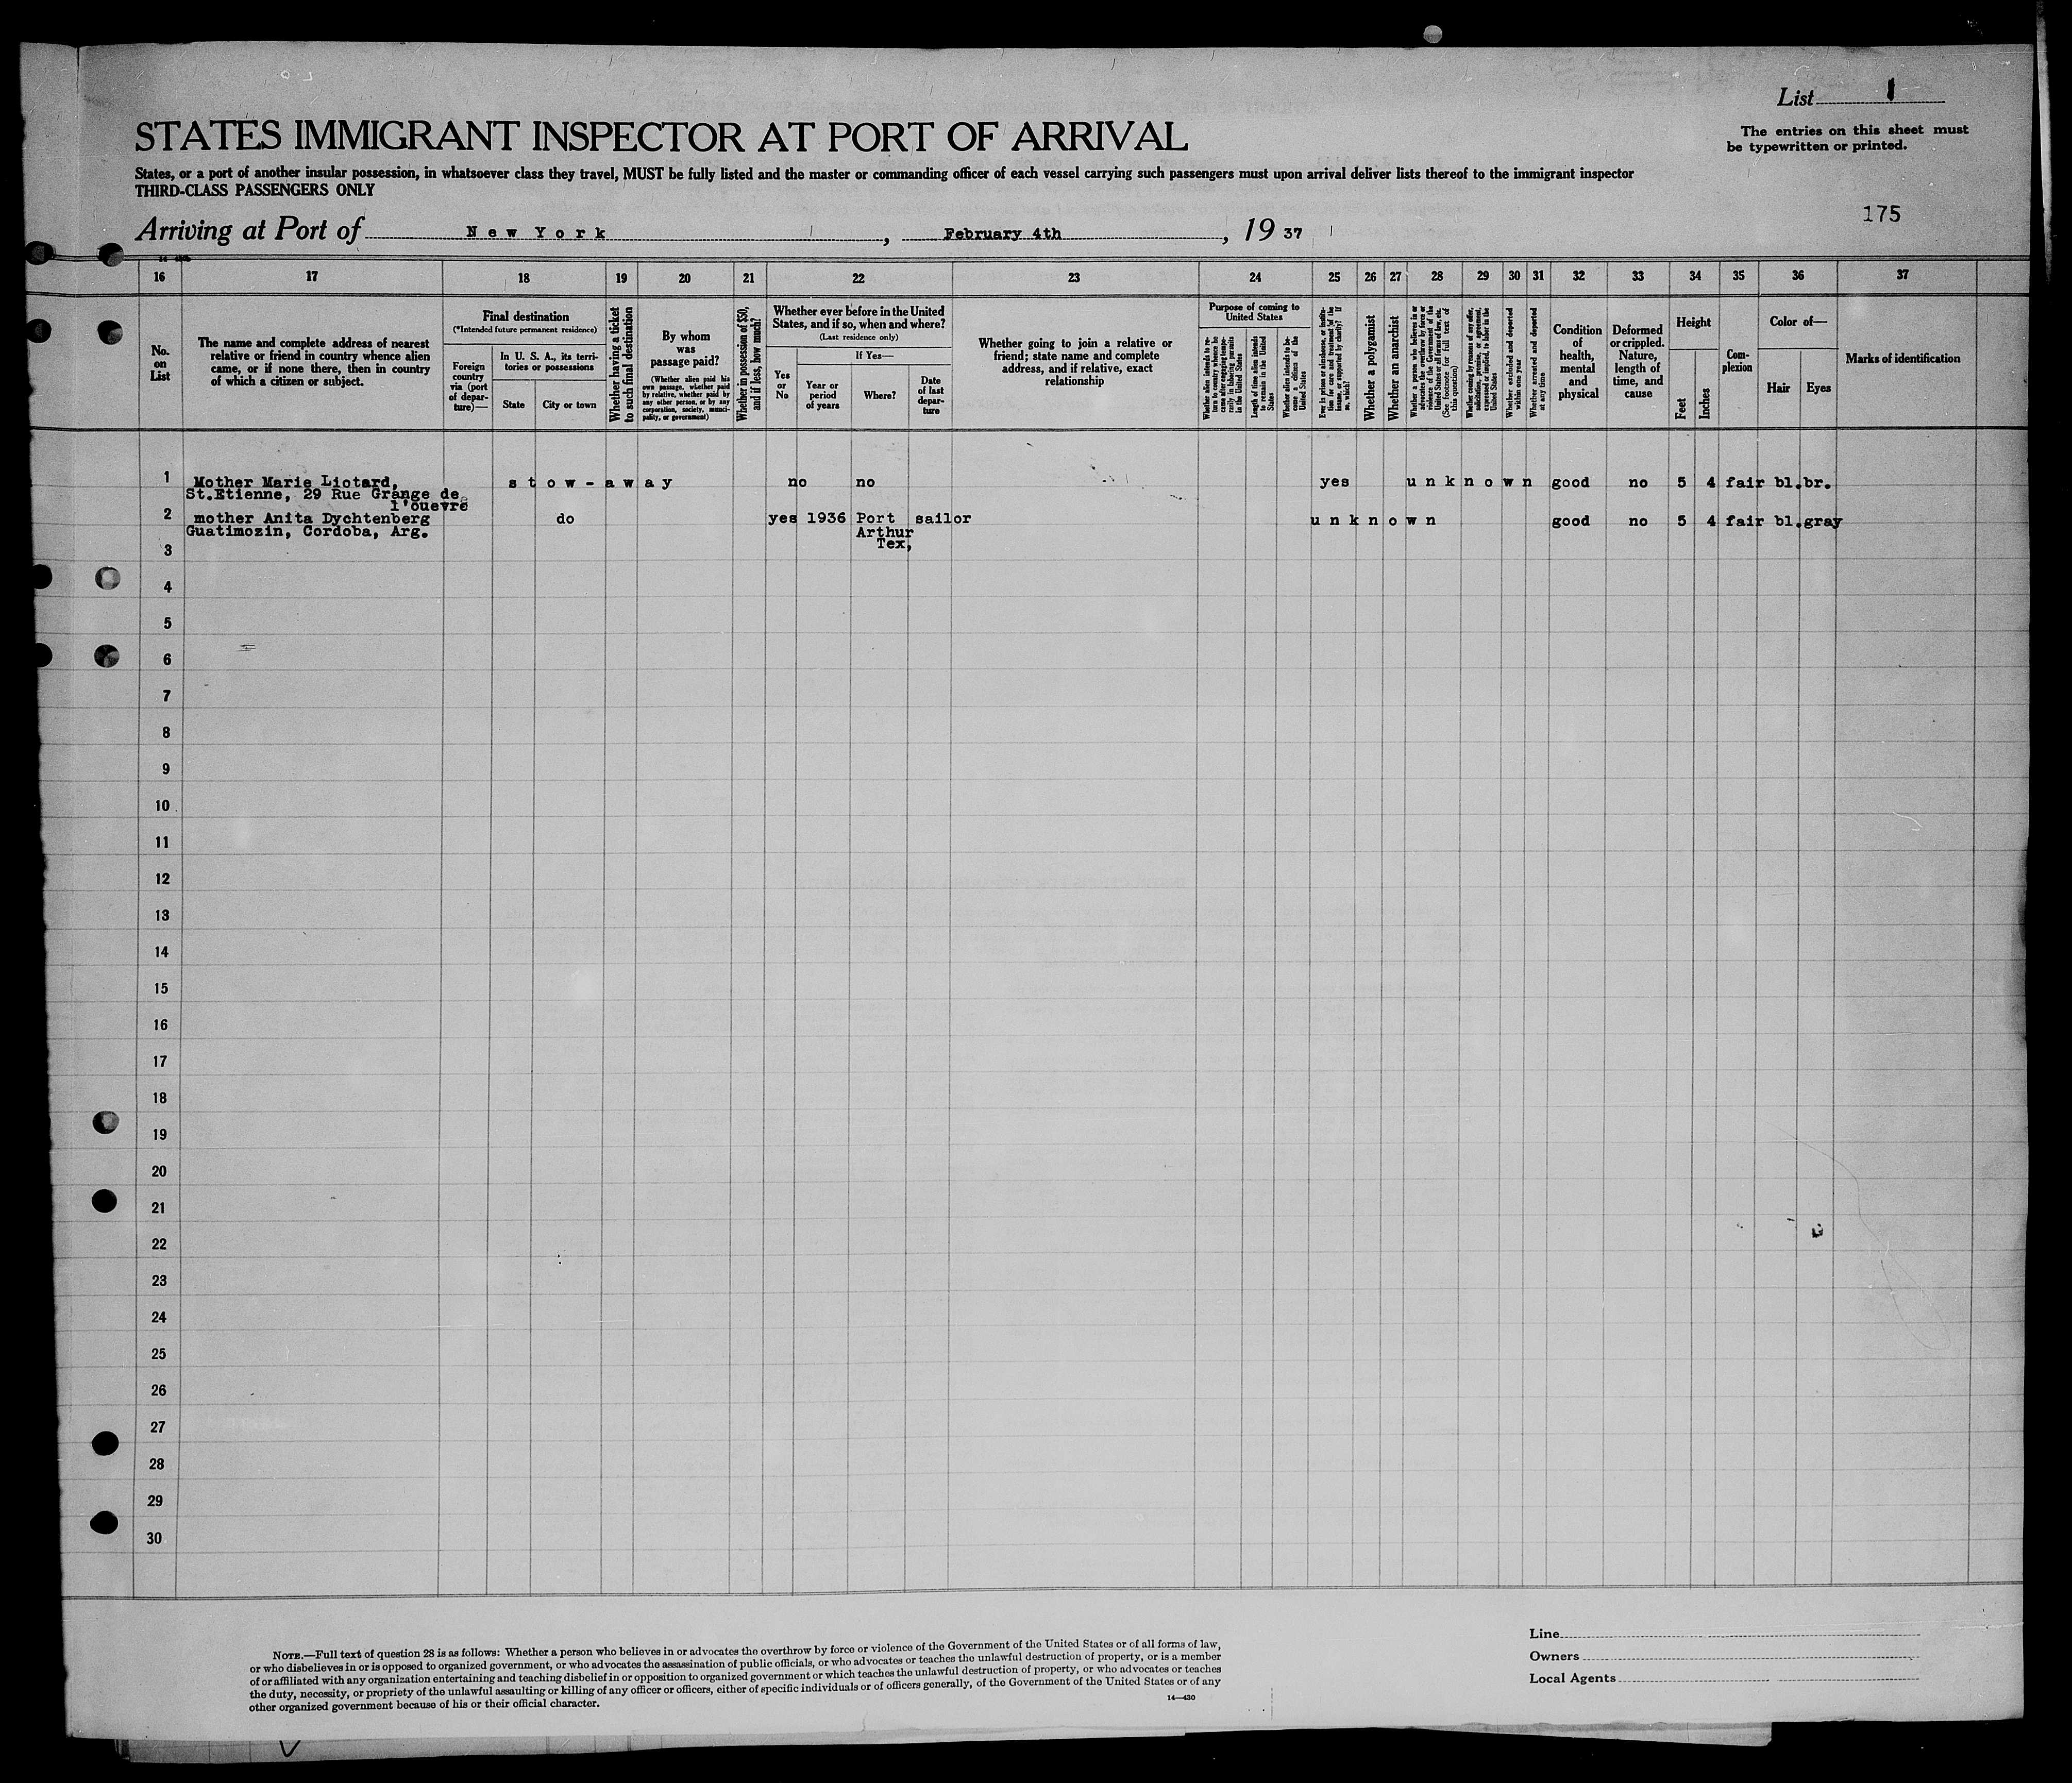 List 1
The entries on this sheet must
be typewritten or printed.
STATES IMMIGRANT INSPECTOR AT PORT OF ARRIVAL
States, or a port of another insular possession, in whatsoever class they travel, MUST be fully listed and the master or commanding officer of each vessel carrying such passengers must upon arrival deliver lists thereof to the immigrant inspector
THIRD-CLASS PASSENGERS ONLY
175
Arriving at Port of New York, February 4th, 1937
16 17 18 19 20 21 22 23 24 25 26 27 28 29 30 31 32 33 34 35 36 37
No.
on
List
The name and complete address of nearest
relative or friend in country whence alien
came, or if none there, then in country
of which a citizen or subject.
Final destination
(*Intended future permanent residence)
Foreign
country
via (port
of depar-
ture)—
In U. S. A., its terri-
tories or possessions
State
City or town
Whether having a ticket
to such final destination
By whom
was
passage paid?
(Whether alien paid his
own passage, whether paid
by relative, whether paid by
any other person, or by any
corporation, society, munici-
pality, or government)
Whether in possession of $50,
and if less, how much?
Whether ever before in the United
States, and if so, when and where?
(Last residence only)
Yes
or
No
If Yes—
Year or
period
of years
Where?
Date
of last
depar-
ture
Whether going to join a relative or
friend; state name and complete
address, and if relative, exact
relationship
Purpose of coming to
United States
Whether alien intends to re-
turn to country whence he
came after engaging tempo-
rarily in laboring pursuits
in the United States
Length of time alien intends
to remain in the United
States
Whether alien intends to be-
come a citizen of the
United States
Ever in prison or almshouse, or institu-
tion for care and treatment of the
insane, or supported by charity? If
so, which?
Whether a polygamist
Whether an anarchist
Whether a person who believes in or
advocates the overthrow by force or
violence of the Government of the
United States or all forms of law, etc.
(See footnote for full text of
this question)
Whether coming by reason of any offer,
solicitation, promise, or agreement,
expressed or implied, to labor in the
United States
Whether excluded and deported
within one year
Whether arrested and deported
at any time
Condition
of
health,
mental
and
physical
Deformed
or crippled.
Nature,
length of
time, and
cause
Height
Feet
Inches
Com-
plexion
Color of—
Hair
Eyes
Marks of identification
1 Mother Marie Liotard, stow-away no no yes unknown good no 5 4 fair bl. br.
St.Etienne, 29 Rue Grange de
l'ouevre
2 mother Anita Dychtenberg do yes 1936 Port sailor unknown good no 5 4 fair bl. gray
Guatimozin, Cordoba, Arg. Arthur
Tex,
3
4
5
6
7
8
9
10
11
12
13
14
15
16
17
18
19
20
21
22
23
24
25
26
27
28
29
30
NOTE.—Full text of question 28 is as follows: Whether a person who believes in or advocates the overthrow by force or violence of the Government of the United States or of all forms of law,
or who disbelieves in or is opposed to organized government, or who advocates the assassination of public officials, or who advocates or teaches the unlawful destruction of property, or is a member
of or affiliated with any organization entertaining and teaching disbelief in or opposition to organized government or which teaches the unlawful destruction of property, or who advocates or teaches
the duty, necessity, or propriety of the unlawful assaulting or killing of any officer or officers, either of specific individuals or of officers generally, of the Government of the United States or of any
other organized government because of his or their official character.
14—430
Line
Owners
Local Agents